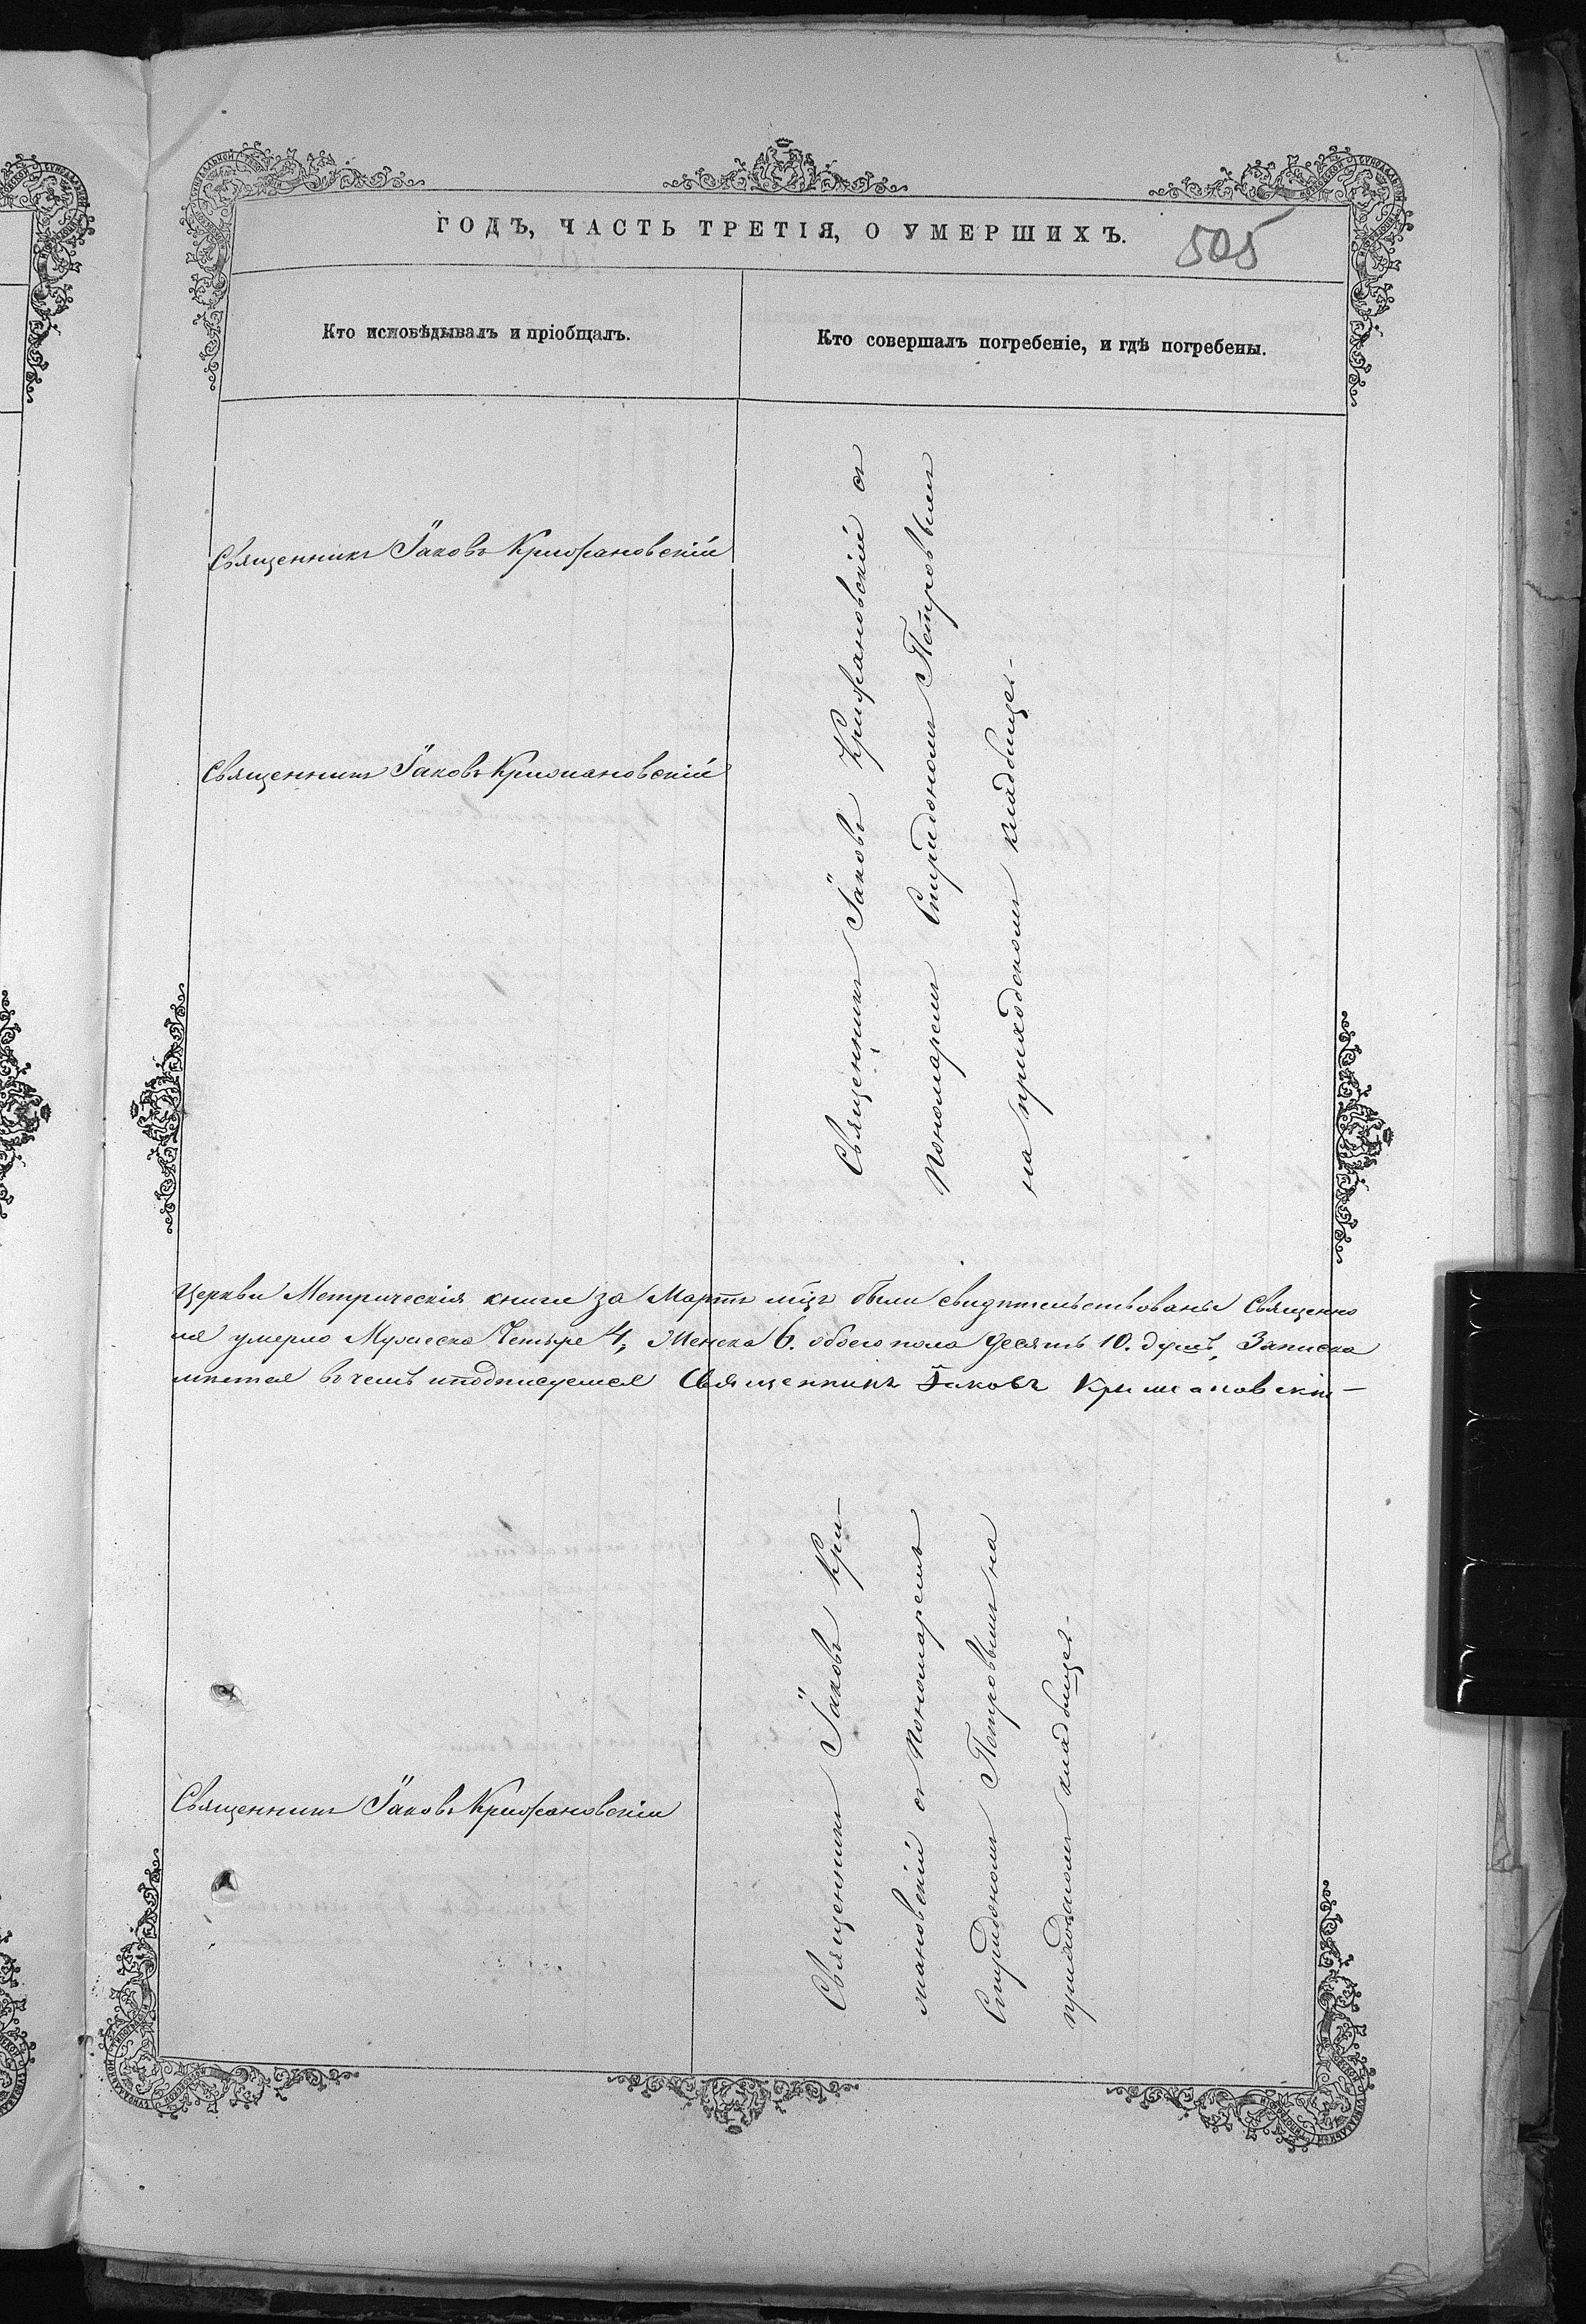 ГОДЪ, ЧАСТЬ ТРЕТІЯ, О УМЕРШИХЪ.
505
Кто исповѣдывалъ и пріобщалъ.
Кто совершалъ погребеніе, и гдѣ погребены.
Священникъ Іаковъ Крижановскій
Священникъ Іаковъ Крижановскій
Священникъ Іаковъ Крижановскій съ
Пономаремъ Спиридономъ Петровымъ
на приходскомъ кладбище.-
Церкви Метрическія книги за Мартъ мцъ были свидѣтельствованы Священно
ля умерло Мужеска Четыре 4, Женска 6. обоего пола Десять 10. душъ, Записка
въ чемъ и подписуемся Священникъ Іаковъ Крижановскій-
Священникъ Іаковъ Крижановскій
Священникъ Іаковъ Кри-
жановскій съ Пономаремъ
Спиридономъ Петровымъ на
приходскомъ кладбище.-